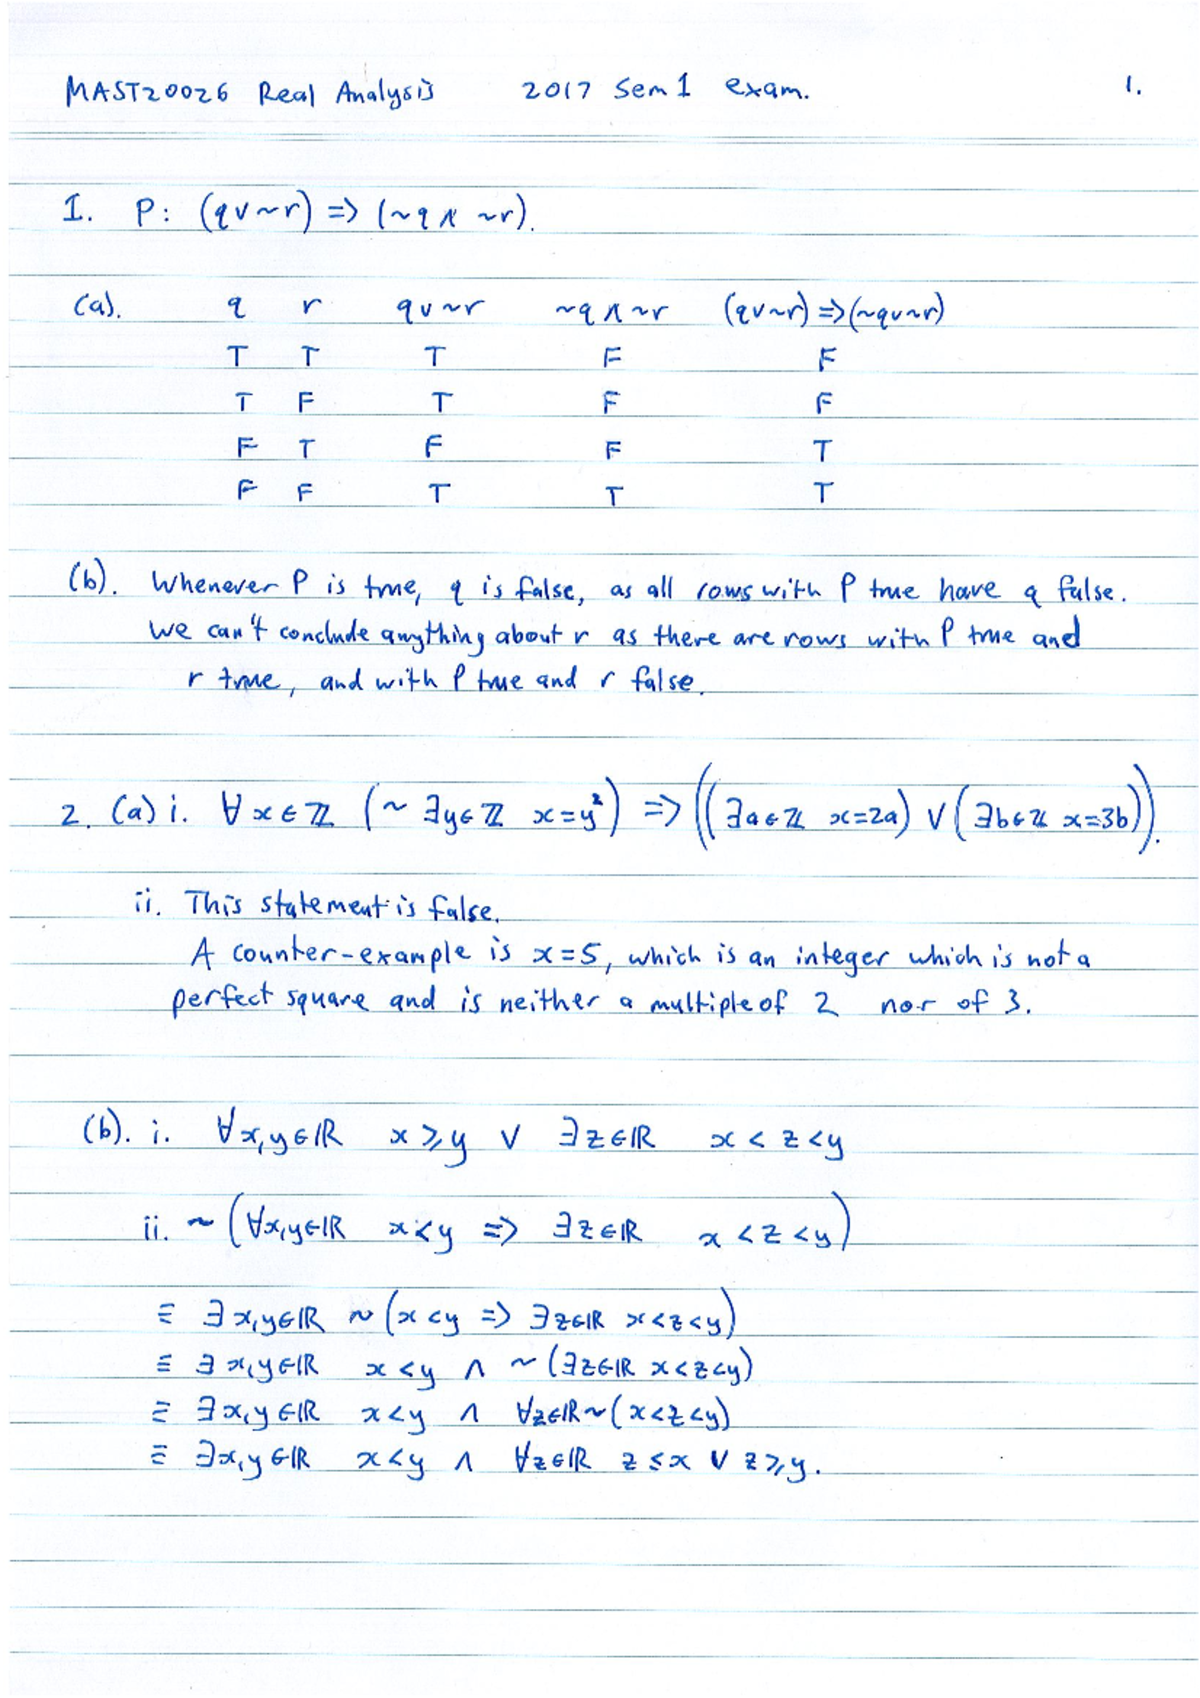 MAST20026 Real Analysis 2017 Sem 1 exam. 1.
1. P: (q∨~r) => (~q ∧ ~r).
(a). q r q∨~r ~q∧~r (q∨~r)=>(~q∨~r)
T T T F F
T F T F F
F T F F T
F F T T T
(b). Whenever P is true, q is false, as all rows with P true have q false.
We can't conclude anything about r as there are rows with P true and
r true, and with P true and r false.
2. (a) i. ∀x∈ℤ (~∃y∈ℤ x=y²) => ((∃a∈ℤ x=2a) ∨ (∃b∈ℤ x=3b)).
ii. This statement is false.
A counter-example is x=5, which is an integer which is not a
perfect square and is neither a multiple of 2 nor of 3.
(b). i. ∀x,y∈ℝ x⩾y ∨ ∃z∈ℝ x<z<y
ii. ~(∀x,y∈ℝ x<y => ∃z∈ℝ x<z<y)
≡ ∃x,y∈ℝ ~(x<y => ∃z∈ℝ x<z<y)
≡ ∃x,y∈ℝ x<y ∧ ~(∃z∈ℝ x<z<y)
≡ ∃x,y∈ℝ x<y ∧ ∀z∈ℝ~(x<z<y)
≡ ∃x,y∈ℝ x<y ∧ ∀z∈ℝ z≤x ∨ z⩾y.